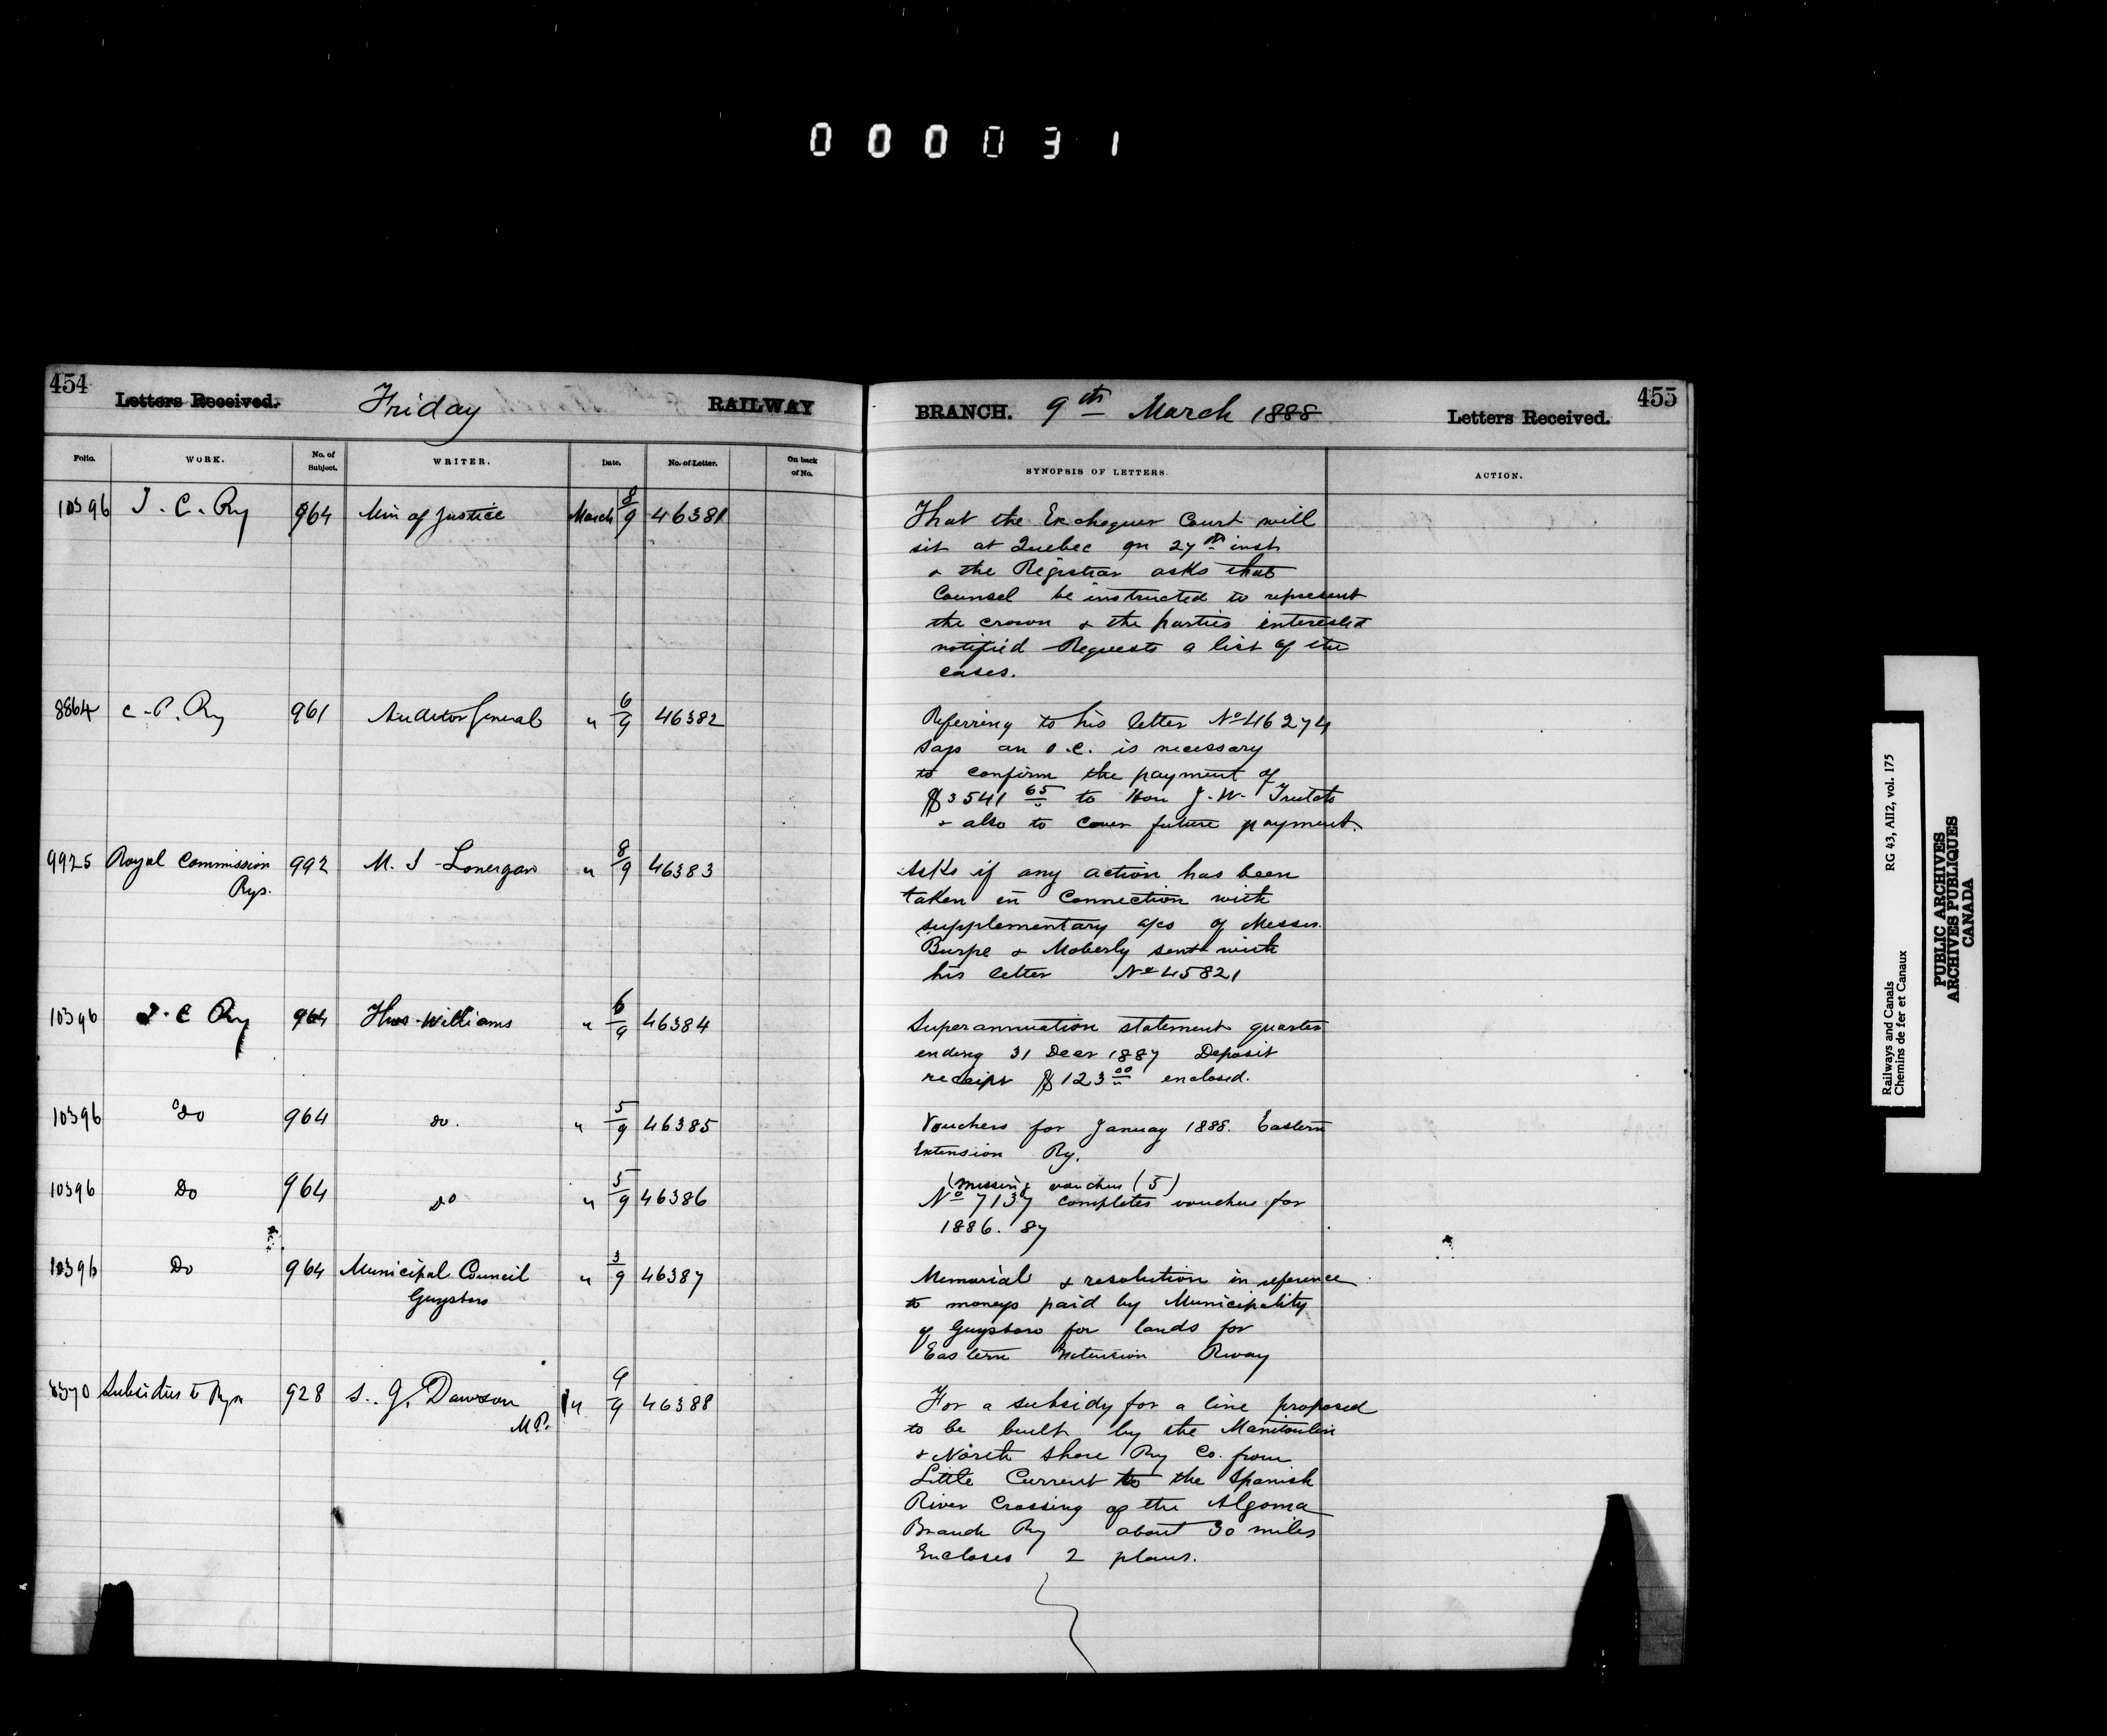 000031
454
Letters Received. Friday RAILWAY
Folio. WORK. No. of Subject. WRITER. Date. No. of Letter. On back of No.
10396 I. C. Ry 964 Min of Justice March 8/9 46381
8864 C. P. Ry 961 Auditor General " 6/9 46382
9925 Royal Commission 992 M. J. Lonergan " 8/9 46383
Rys.
10396 I. C Ry 964 Thos Williams " 6/9 46384
10396 Do 964 Do. " 5/9 46385
10396 Do 964 Do " 5/9 46386
10396 Do 964 Municipal Council " 3/9 46387
Guysboro
8570 Subsidies to Rys 928 S. J. Dawson " 9/9 46388
M.P.
455
BRANCH. 9th March 1888 Letters Received.
SYNOPSIS OF LETTERS. ACTION.
That the Exchequer Court will
sit at Quebec on 27th inst
& the Registrar asks that
Counsel be instructed to represent
the crown & the parties interested
notified Requests a list of the
cases.
Referring to his letter No 46274
says an O.C. is necessary
to confirm the payment of
$3541 65 to Hon J. W. Trutch
& also to cover future payment.
Asks if any action has been
taken in Connection with
supplementary a/cs of Messrs.
Burpe & Moberly sent with
his letter No 45821
Superannuation statement quarter
ending 31 Decr 1887 Deposit
receipt $123 00 enclosed.
Vouchers for January 1888. Eastern
Extension Ry.
(missing voucher (5)
No 7137 completes vouchers for
1886. 87
Memorial & resolution in reference
to moneys paid by Municipality
of Guysboro for lands for
Eastern Extension Rway
For a subsidy for a line proposed
to be built by the Manitoulin
& North Shore Ry Co. from
Little Current to the Spanish
River Crossing of the Algoma
Branch Ry about 30 miles
Encloses 2 plans.
Railways and Canals RG 43, AII2, vol. 175
Chemins de fer et Canaux
PUBLIC ARCHIVES
ARCHIVES PUBLIQUES
CANADA